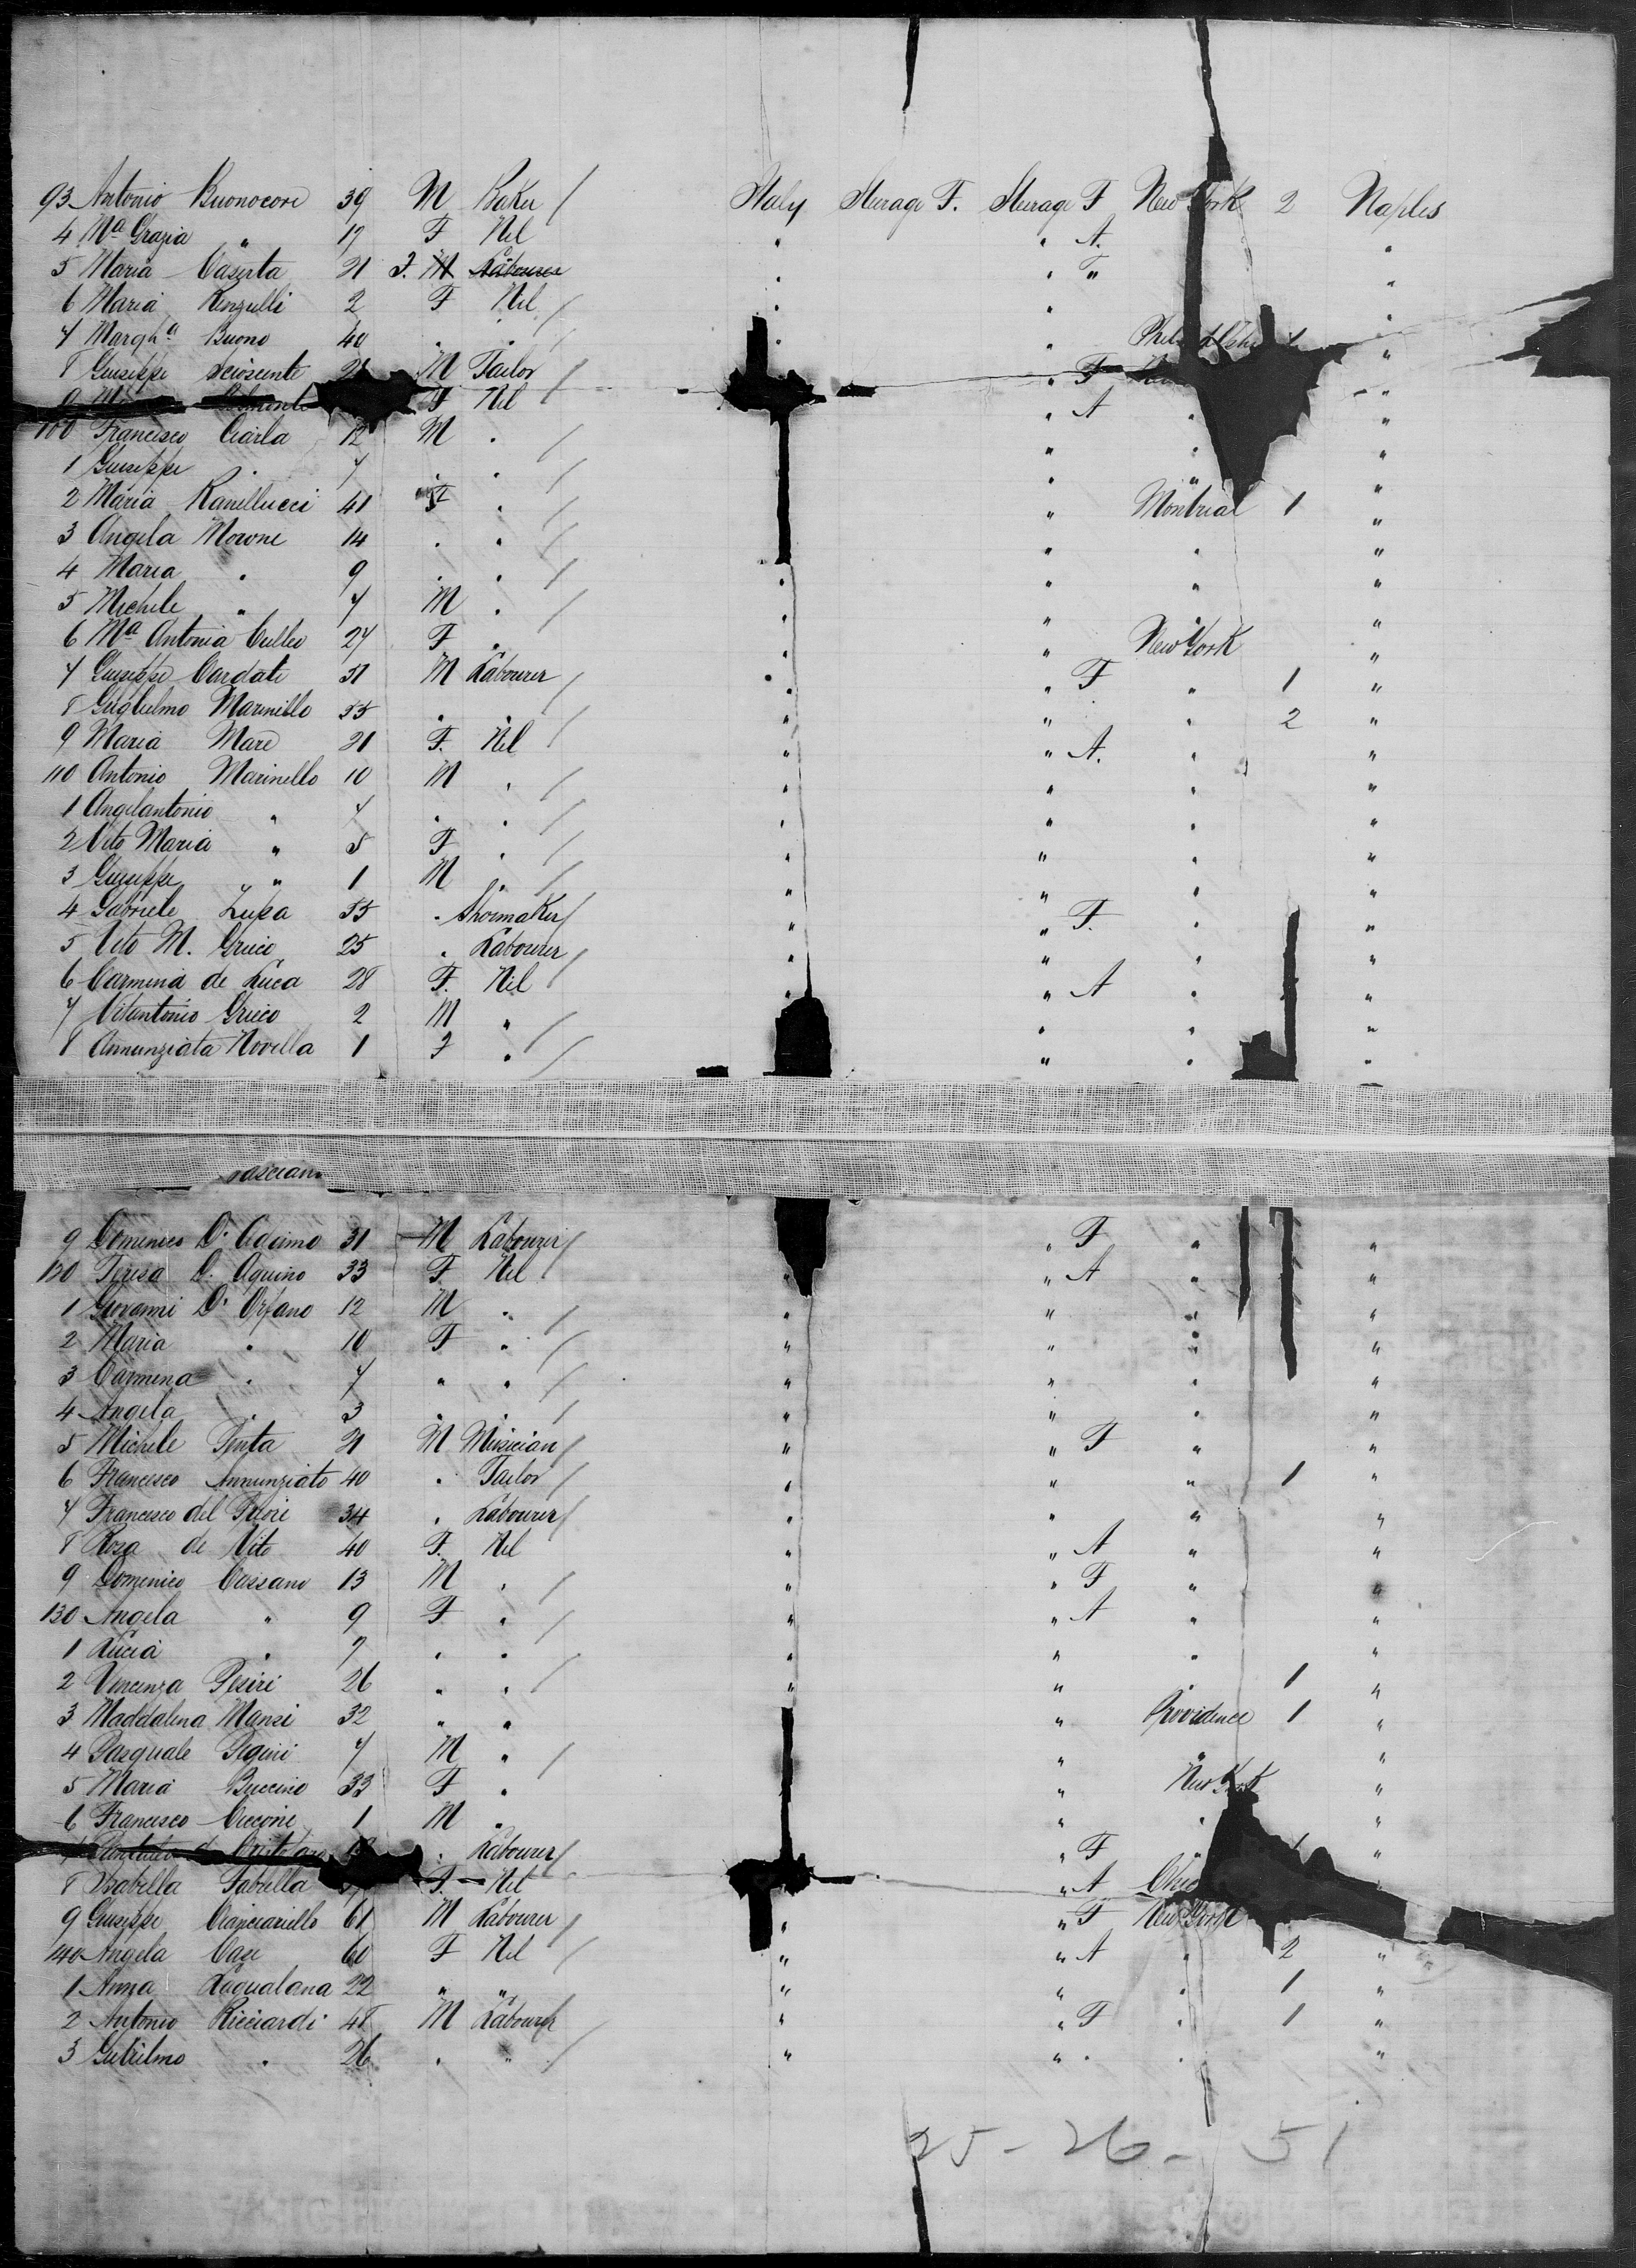 93 Antonio Buonocore 39 M Baker / Italy Sterage F. Sterage F New York 2 Naples
4 Ma Grazia " 17 F Nil " " A. "
5 Maria Caserta 21 F. M Labourer " " " "
6 Maria 2 F Nil / " " "
7 Margha Buono 40 . . / " " 1 "
8 Giuseppe M Tailor / " F "
9 F Nil / " A " "
100 Francesco Ciarla 12 M . / " " "
1 Giuseppe . 7 . . / " " "
2 Maria Ranellucci 41 F . / " Montreal 1 "
3 Angela Morone 14 . . / " " "
4 Maria . 9 . . / " " " "
5 Michele " 7 M . / " " " "
6 Ma Antonia 24 F . " " New York "
7 Giuseppe Cardate 31 M Labourer / " " F " 1 "
8 Guglielmo Marinello 35 . . / " " " 2 "
9 Maria Mare 21 F. Nil / " " A. " "
110 Antonio Marinello 10 M . / " " " "
1 Angelantonio " 7 . . / " " " "
2 Vito Maria " 5 F . / " " " "
3 Giuseppe " 1 M . / " " " "
4 Gabriele Lupa 35 . Shoemaker / " " F. "
5 Vito M. Grieco 25 . Labourer / " " " "
6 Carmina de Luca 28 F. Nil / " " A " "
7 Vitantonio Grieco 2 M " / " " "
8 Annunziata Novella 1 F . / " " "
9 Domenico D' Adamo 31 M Labourer / " F " "
120 Teresa D. Aquino 33 F Nil / " " A " "
1 Giovanni D' Orfano 12 M . / " " " "
2 Maria . 10 F . / " " " "
3 Carmena . 7 " " / " " " "
4 Angela . 3 . . / " " " "
5 Michele Pinta 21 M Musician / " " F " "
6 Francesco Annunziato 40 . Tailor / " " " 1 "
7 Francesco del Priore 34 . Labourer / " " " "
8 Rosa de Vito 40 F. Nil " " A " "
9 Domenico Cassano 13 M . / " " F " "
130 Angela " 9 F . / " " A " "
1 Lucia . 7 . . " " " "
2 Vincenza Pesiri 26 " . / " " . 1 "
3 Maddalena Mansi 32 " " " Providence 1 "
4 Pasquale 7 M " / " " "
5 Maria Buccino 33 F . " New York "
6 Francesco Ciccone 1 M . " " "
7 . Labourer / " F "
8 Isabella F. Nil " A
9 Giuseppe Cianciariello 61 M Labourer / " " F New York
140 Angela 60 F Nil / " " A " 2 "
1 22 " " " " . 1 "
2 Antonio Ricciardi 48 M Labourer " " F . 1 "
3 . 26 . " / " " . . "
25 - 26 - 51